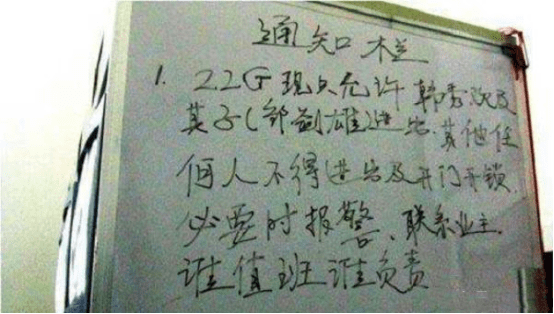 通知栏
1. 22G现只允许韩秀及
其子(邹剑雄)进出.其他任
何人不得进出及开门开锁.
必要时报警、联系业主.
谁值班谁负责